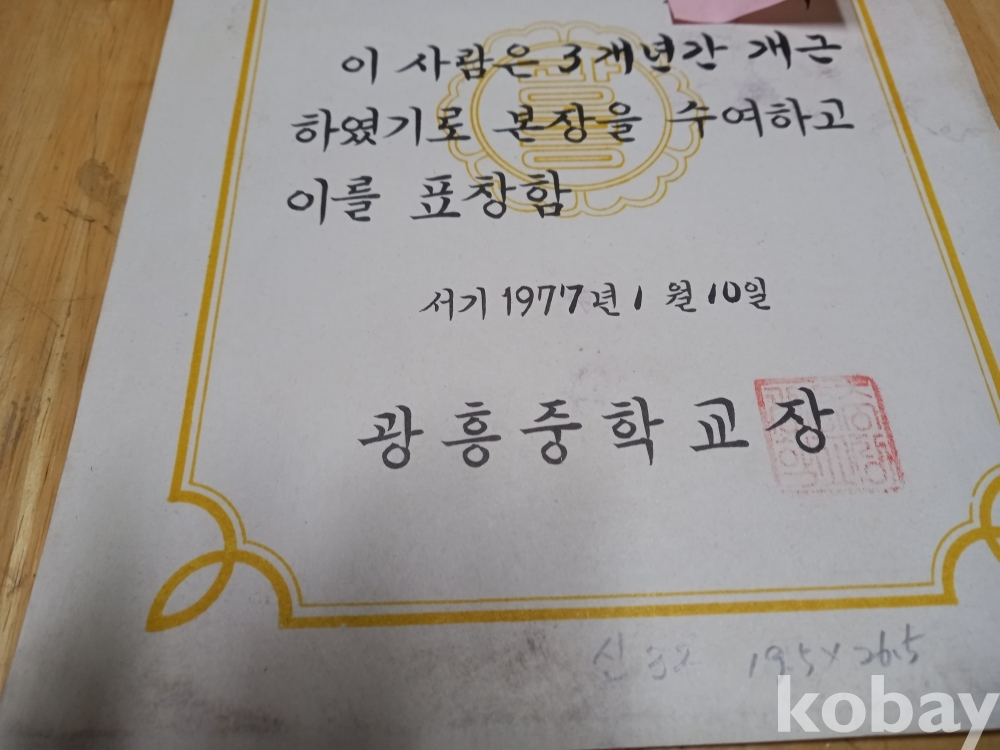 이 사람은 3개년간 개근
하였기로 본장을 수여하고
이를 표창함
서기 1977년 1월 10일
광흥중학교장
19.5 × 26.5
kobay